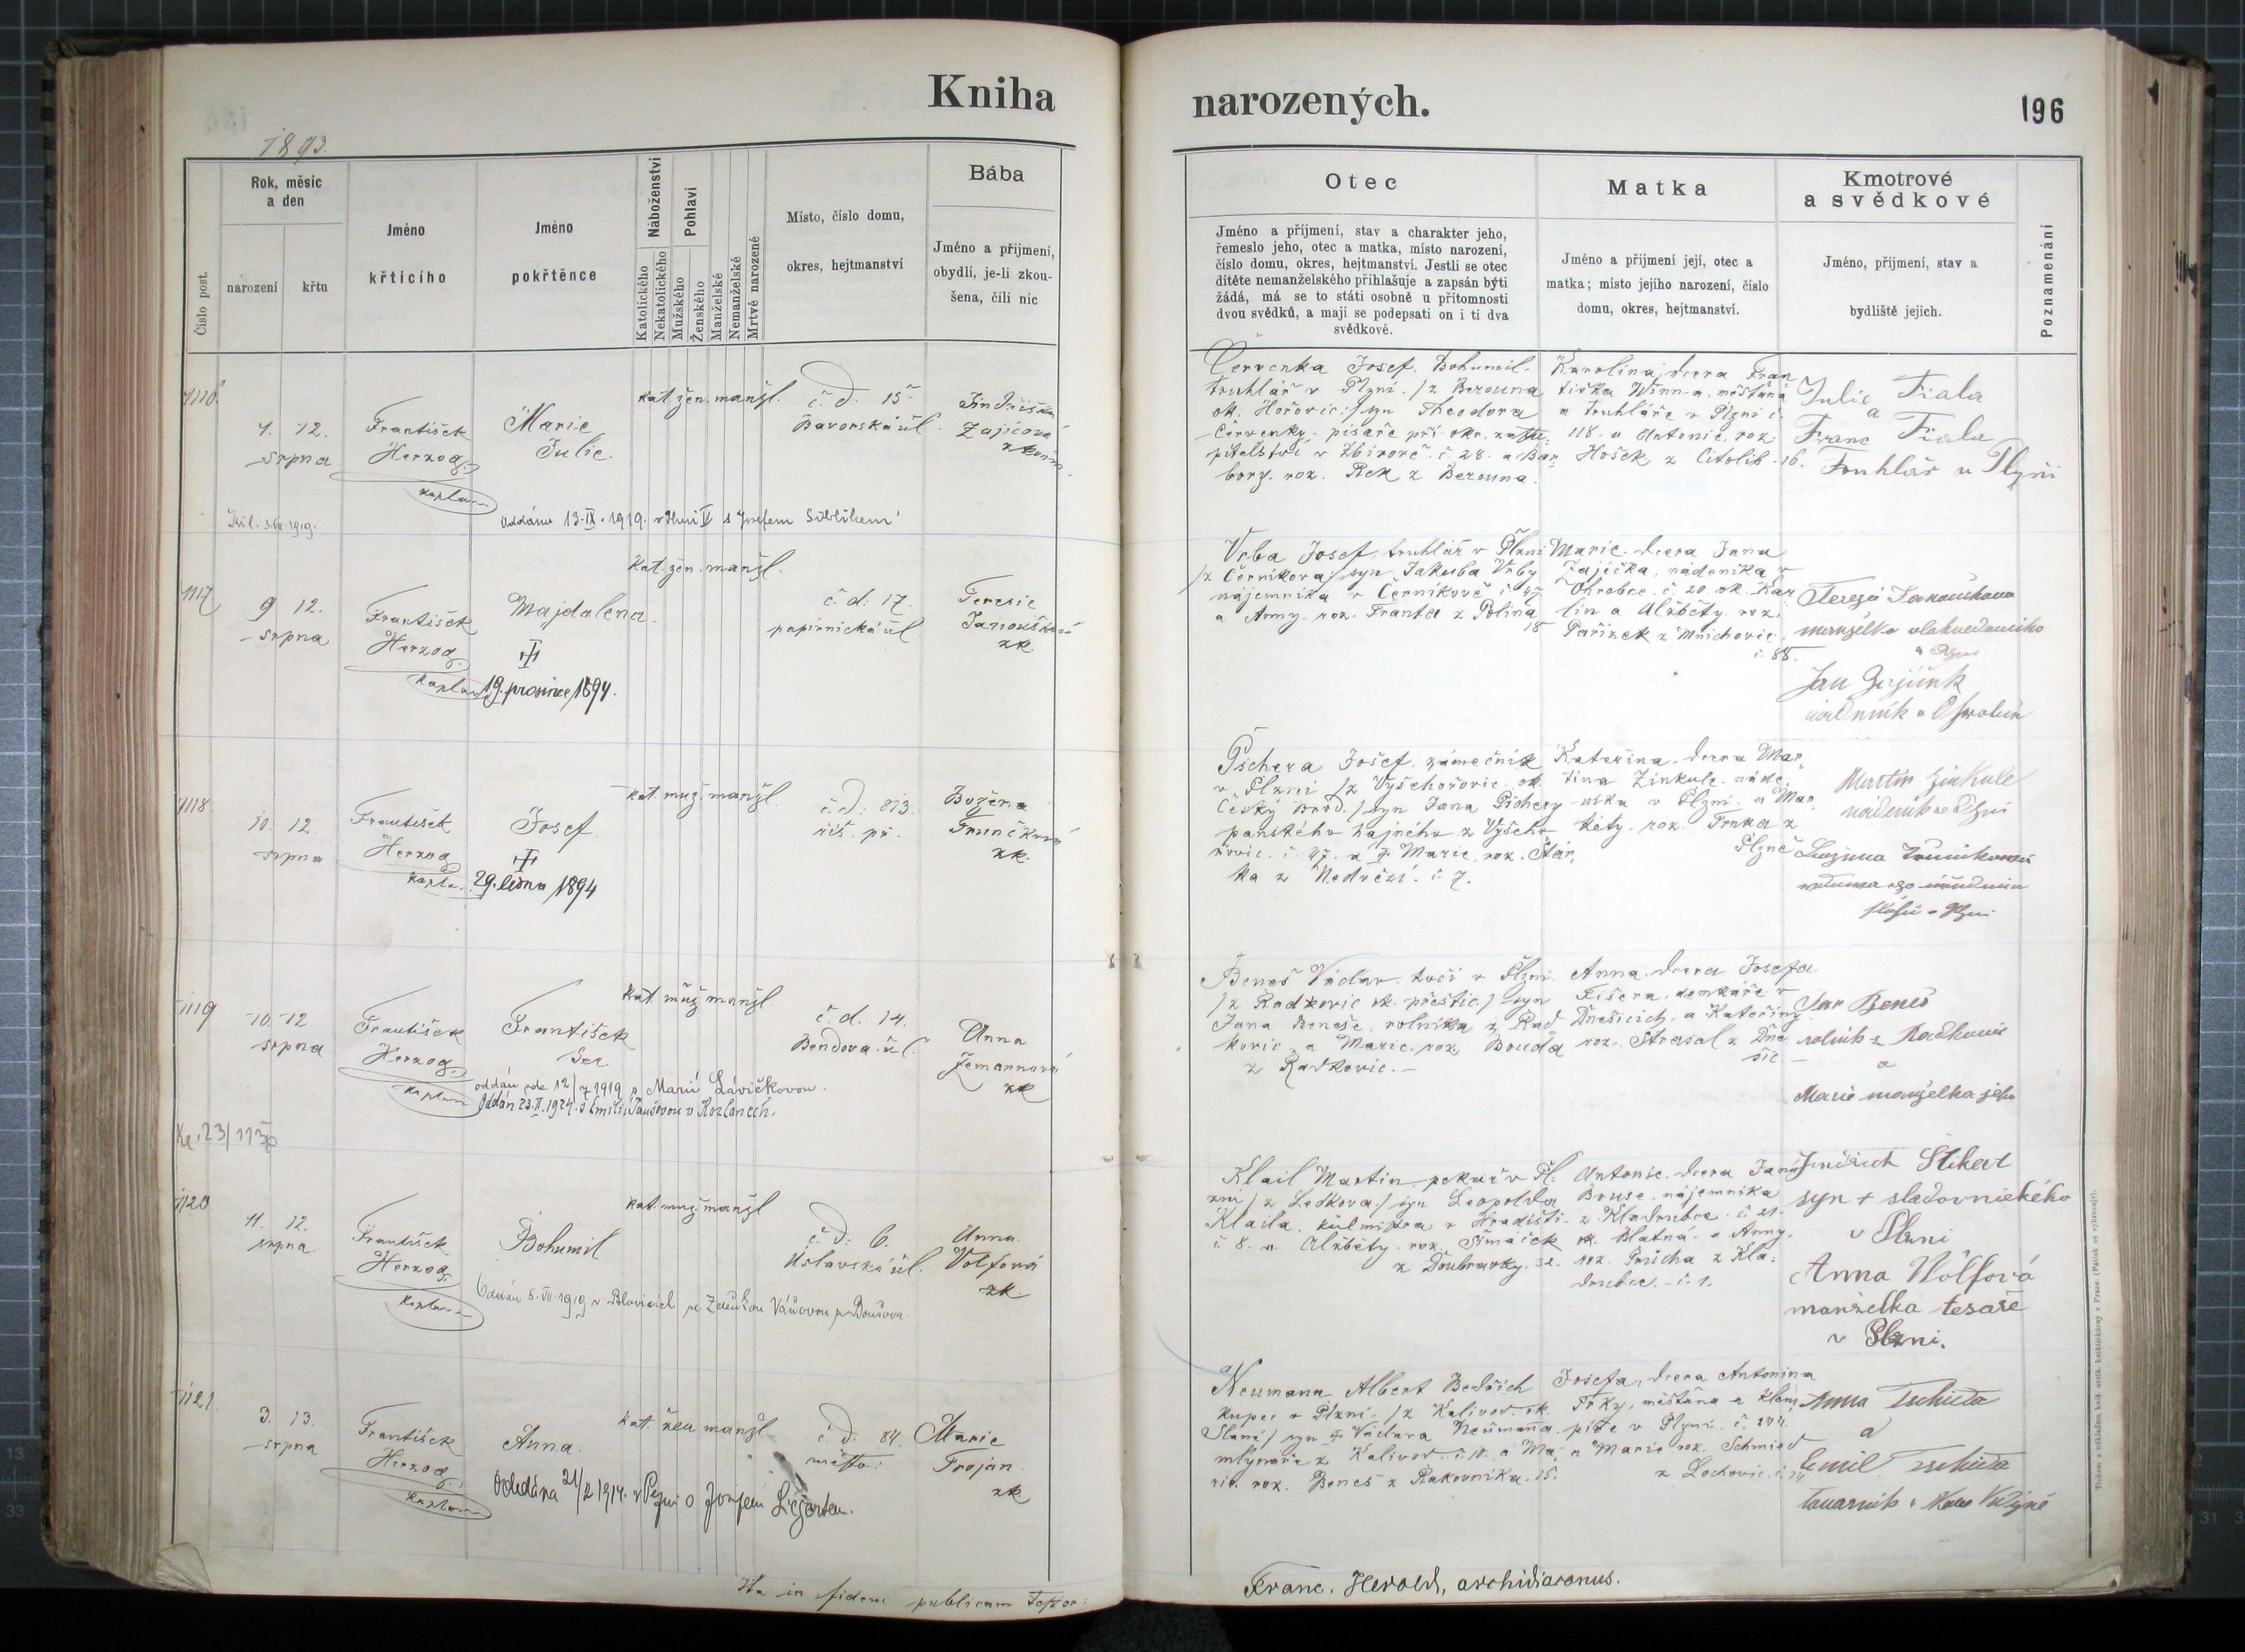 Kniha
narozených.
196
1893.
Číslo post.
Rok, měsíc
a den
narození
křtu
Jméno
křtícího
Jméno
pokřtěnce
Náboženství
Katolického
Nekatolického
Pohlaví
Mužského
Ženského
Manželské
Nemanželské
Mrtvě narozené
Místo, číslo domu,
okres, hejtmanství
Bába
Jméno a příjmení,
obydlí, je-li zkou-
šena, čili nic
Otec
Jméno a příjmení, stav a charakter jeho,
řemeslo jeho, otec a matka, místo narození,
číslo domu, okres, hejtmanství. Jestli se otec
dítěte nemanželského přihlašuje a zapsán býti
žádá, má se to státi osobně u přítomnosti
dvou svědků, a mají se podepsati on i ti dva
svědkové.
Matka
Jméno a příjmení její, otec a
matka; místo jejího narození, číslo
domu, okres, hejtmanství.
Kmotrové
a svědkové
Jméno, příjmení, stav a
bydliště jejich.
Poznamenání
1116
4. 12.
srpna
František
Herzog
kaplan
Marie
Julie.
kat. žen. manžl.
č. d. 15
Bavorská ul.
Jindřiška
Zajícová
Oddána 13.IX.1919.
Červenka Josef Bohumil
truhlář v Plzni /z Berouna
ok. Hořovic:/ syn Theodora
Červenky, písaře při okr. zastu:
pitelství v Zbirově č. 28. a Bar
bory. roz. Rek z Berouna.
Karolina, dcera Fran
tiška Winn-a, měšťana
a truhláře v Plzni č.
118. a Antonie, roz.
Hošek z Citolib 16.
Julie Fiala
a
Franc Fiala
Truhlář v Plzni
1117
9 12.
srpna
František
Herzog
kaplan
Majdalena.
19. prosince 1894.
kat. žen. manžl.
č. d: 17.
papírnická ul
Teresie
Janoušková
zk.
Vrba Josef, truhlář v Plzni
/z Černíkova/ syn Jakuba Vrby
nájemníka v Černíkově č. 47
a Anny. roz. Franta z Polína
18
Marie. dcera Jana
Zajíčka, nádeníka v
Ohrobce. č. 20. ok. Kar
lín a Alžběty. roz.
Pařízek z Mnichovic
č. 88.
Terezie Janoušková
manželka
1118
10. 12
srpna
František
Herzog
kapla.
Josef
29. ledna 1894
kat. muž. manžl.
č. d: 813.
říš. př.
Božena
zk.
Pschera Josef, zámečník
v Plzni /z Vyšehořovic. ok.
Český Brod./ syn Jana Pschery
panského hajného z Vyšeho
řovic. č. 47. a Marie, roz. Stár
ka z Nedvězí. č 7.
Kateřina. dcera Mar
tina Zinkule. náde
níka v Plzni. a Mar
kéty. roz. Trnka z
Plzně
Martin Zinkule
nádeník v Plzni
1119
10. 12
srpna
František
Herzog
kaplan
František
Ser
kat. muž. manžl
č. d. 14.
Bendova ul.
Anna
Zemannová
zk
Oddán 23.II.1924. s Emilií
Beneš Václav, kočí v Plzni
/z Radkovic ok. přeštic/ syn
Jana Beneše, rolníka z Rad
kovic a Marie. roz. Bouda
z Radkovic.
Anna, dcera Josefa
Fišera, domkáře v
Dnešicích, a Kateřiny
roz. Strasal z Dne
šic
Jan Beneš
rolník z Radkovic
a
Marie manželka jeho
1120
11. 12.
srpna.
František
Herzog.
kaplan
Bohumil
kat. muž. manžl
č. d: 6.
Úslavská ul.
Anna
Volfová
zk.
Klail Martin pekař v Pl:
zni /z Ledkova:/ syn Leopolda
Klaila, kulmistra v Hradišti
č 8. a Alžběty. roz. Šimáček
z Doubravky. 32.
Antonie. dcera Jana
Bouse, nájemníka
z Kladrubce. č. 21.
ok. Blatná. a Anny.
roz. Prücha z Kla:
drubce. č. 1.
Jindřich Stikert
syn + sladovnického
v Plzni
Anna Wolfová
manželka tesaře
v Plzni.
1121.
3. 13.
srpna
František
Herzog
kaplan
Anna.
kat. žen manžl
č. d: 84.
město:
Marie
Trojan
zk
Oddána 21/2 1914. v Plzni
Neumann Albert Bedřich
kupec v Plzni. /z Kalivod. ok.
Slaný/ syn Václava Neumanna
mlynáře z Kalivod. č. 10. a Ma
rie. roz. Beneš z Rakovníka. 15.
Josefa, dcera Antonína
Trky, měšťana a klem
píře v Plzni. č. 244
a Marie roz. Schmied
z Lochovic.
Anna Tschida
a
Emil Tschida
Ita in fidem publicam testor:
Franc. Herold, archidiaconus.